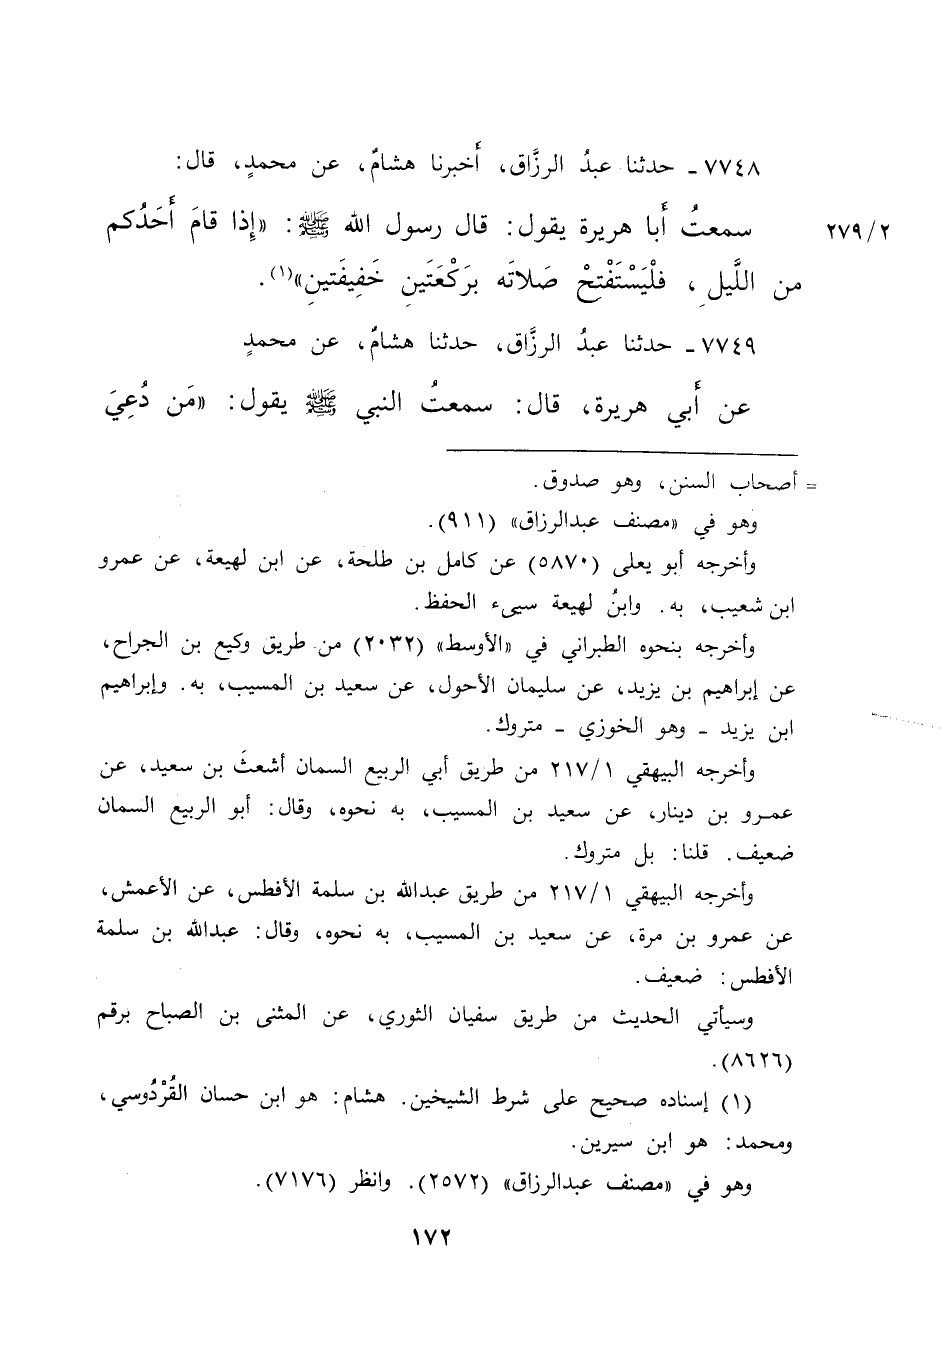 ٧٧٤٨ ـ حدثنا عبدُ الرزَّاق، أَخبرنا هشامٌ، عن محمدٍ، قال:
٢٧٩/٢ سمعتُ أَبا هريرة يقول: قال رسول الله ﷺ: «إِذا قامَ أَحَدُكم
من اللَّيلِ، فلْيَسْتَفْتِحْ صَلاتَه بِرَكْعَتَينِ خَفِيفَتينِ»(١).
٧٧٤٩ ـ حدثنا عبدُ الرزَّاق، حدثنا هشامٌ، عن محمدٍ
عن أَبي هريرة، قال: سمعتُ النبي ﷺ يقول: «مَن دُعِيَ
= أصحاب السنن، وهو صدوق.
وهو في «مصنف عبدالرزاق» (٩١١).
وأخرجه أبو يعلى (٥٨٧٠) عن كامل بن طلحة، عن ابن لهيعة، عن عمرو
ابن شعيب، به. وابنُ لهيعة سيىء الحفظ.
وأخرجه بنحوه الطبراني في «الأوسط» (٢٠٣٢) من طريق وكيع بن الجراح،
عن إبراهيم بن يزيد، عن سليمان الأحول، عن سعيد بن المسيب، به. وإبراهيم
ابن يزيد ـ وهو الخوزي ـ متروك.
وأخرجه البيهقي ٢١٧/١ من طريق أبي الربيع السمان أشعثَ بن سعيد، عن
عمرو بن دينار، عن سعيد بن المسيب، به نحوه، وقال: أبو الربيع السمان
ضعيف. قلنا: بل متروك.
وأخرجه البيهقي ٢١٧/١ من طريق عبدالله بن سلمة الأفطس، عن الأعمش،
عن عمرو بن مرة، عن سعيد بن المسيب، به نحوه، وقال: عبدالله بن سلمة
الأفطس: ضعيف.
وسيأتي الحديث من طريق سفيان الثوري، عن المثنى بن الصباح برقم
(٨٦٢٦).
(١) إسناده صحيح على شرط الشيخين. هشام: هو ابن حسان القُرْدُوسي،
ومحمد: هو ابن سيرين.
وهو في «مصنف عبدالرزاق» (٢٥٧٢). وانظر (٧١٧٦).
١٧٢